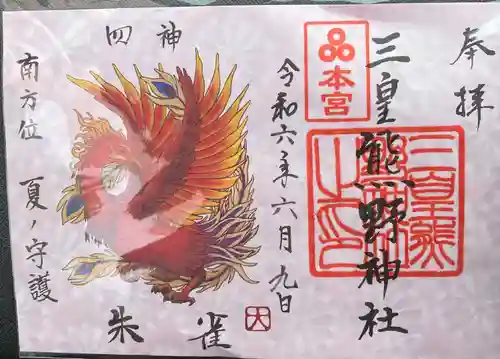 奉拝
三皇熊野神社
本宮
三皇熊
令和六年六月九日
大
四神
朱雀
南方位
夏ノ守護